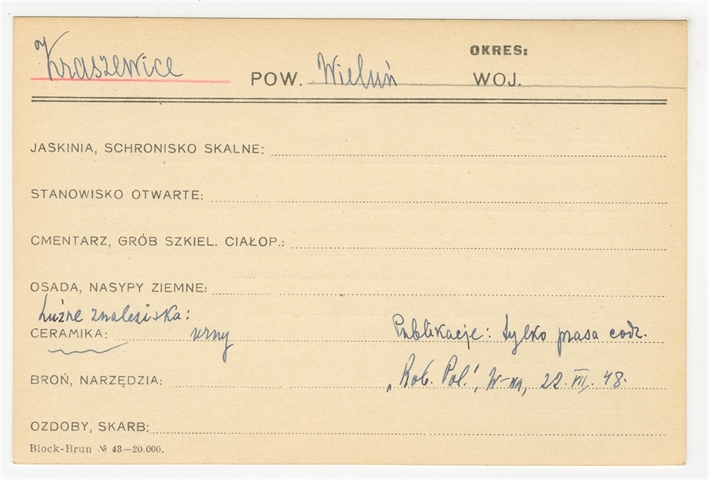 OKRES:
Kraszewice POW. Wieluń WOJ.
JASKINIA, SCHRONISKO SKALNE:
STANOWISKO OTWARTE:
CMENTARZ, GRÓB SZKIEL. CIAŁOP.:
OSADA, NASYPY ZIEMNE:
Luźne znalesiska:
CERAMIKA: urny Publikacje: tylko prasa codz.
BROŃ, NARZĘDZIA: „Rob. Pol.", W-wa, 22. VII. 48.
OZDOBY, SKARB:
Block-Brun № 43—20.000.